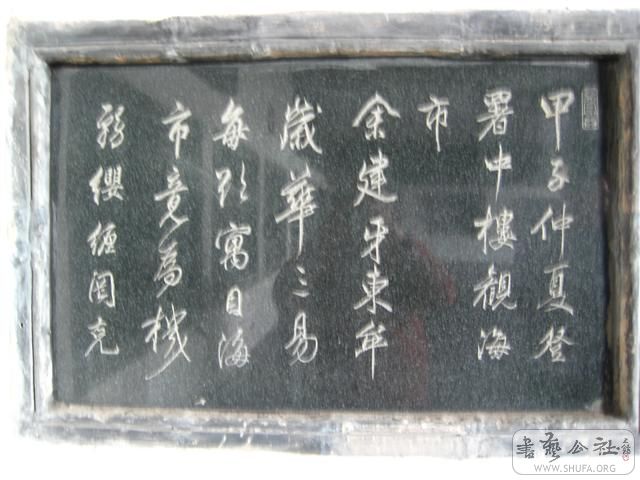 甲子仲夏登
署中樓觀海
市
余建牙東牟
歲華三易
每欲寓目海
市竟為機
務纓纏罔克
書藝公社
WWW.SHUFA.ORG